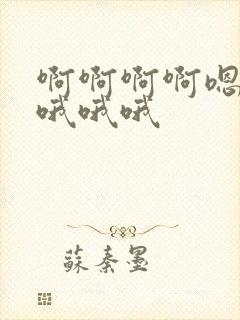 啊啊啊啊嗯
哦哦哦
蘇秦墨